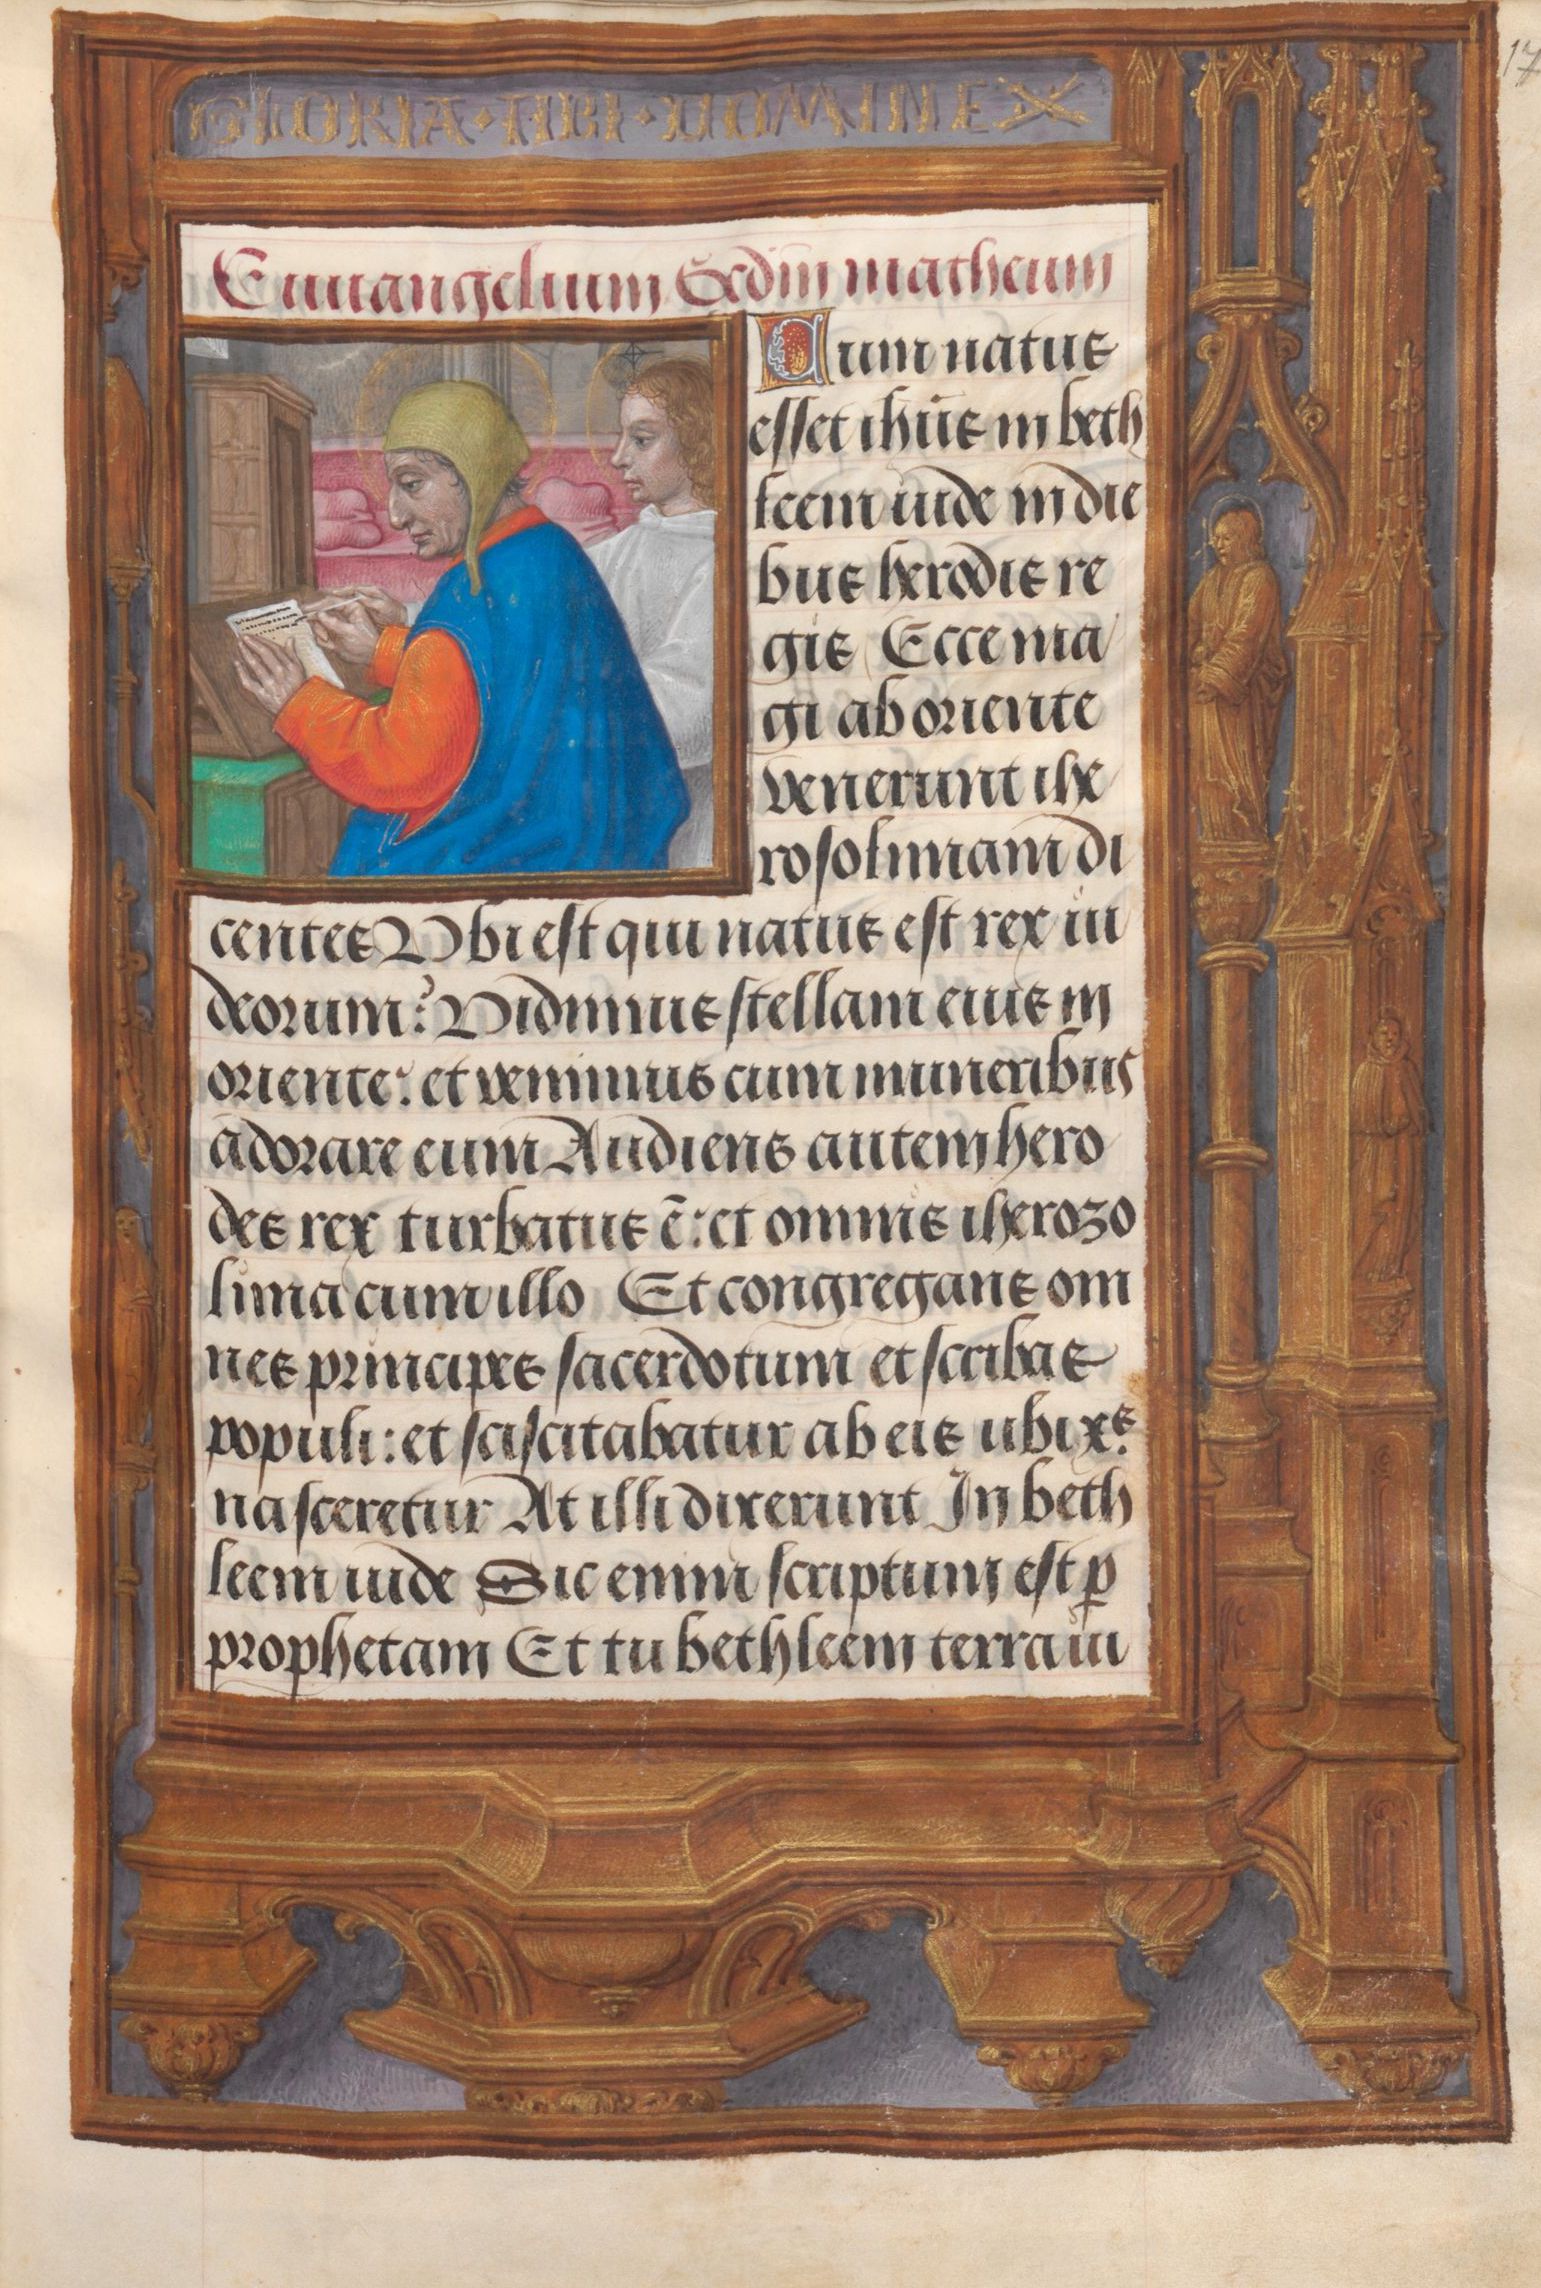 17
GLORIA · TIBI · DOMINE
Euuangelium Scdm matheum
Cum natus
esset ihūs in beth
leem iude in die
bus herodis re
gis Ecce ma
gi ab oriente
venerunt ihe
rosolimam di
centes Vbi est qui natus est rex iu
deorum? Vidimus stellam eius in
oriente: et venimus cum muneribus
adorare eum Audiens autem hero
des rex turbatus ē: et omnis iherozo
lima cum illo Et congregans om
nes principes sacerdotum et scribas
populi: et sciscitabatur ab eis ubi xˢ.
nasceretur At illi dixerunt In beth
leem iude Sic enim scriptum est ꝑ
prophetam Et tu bethleem terra iu